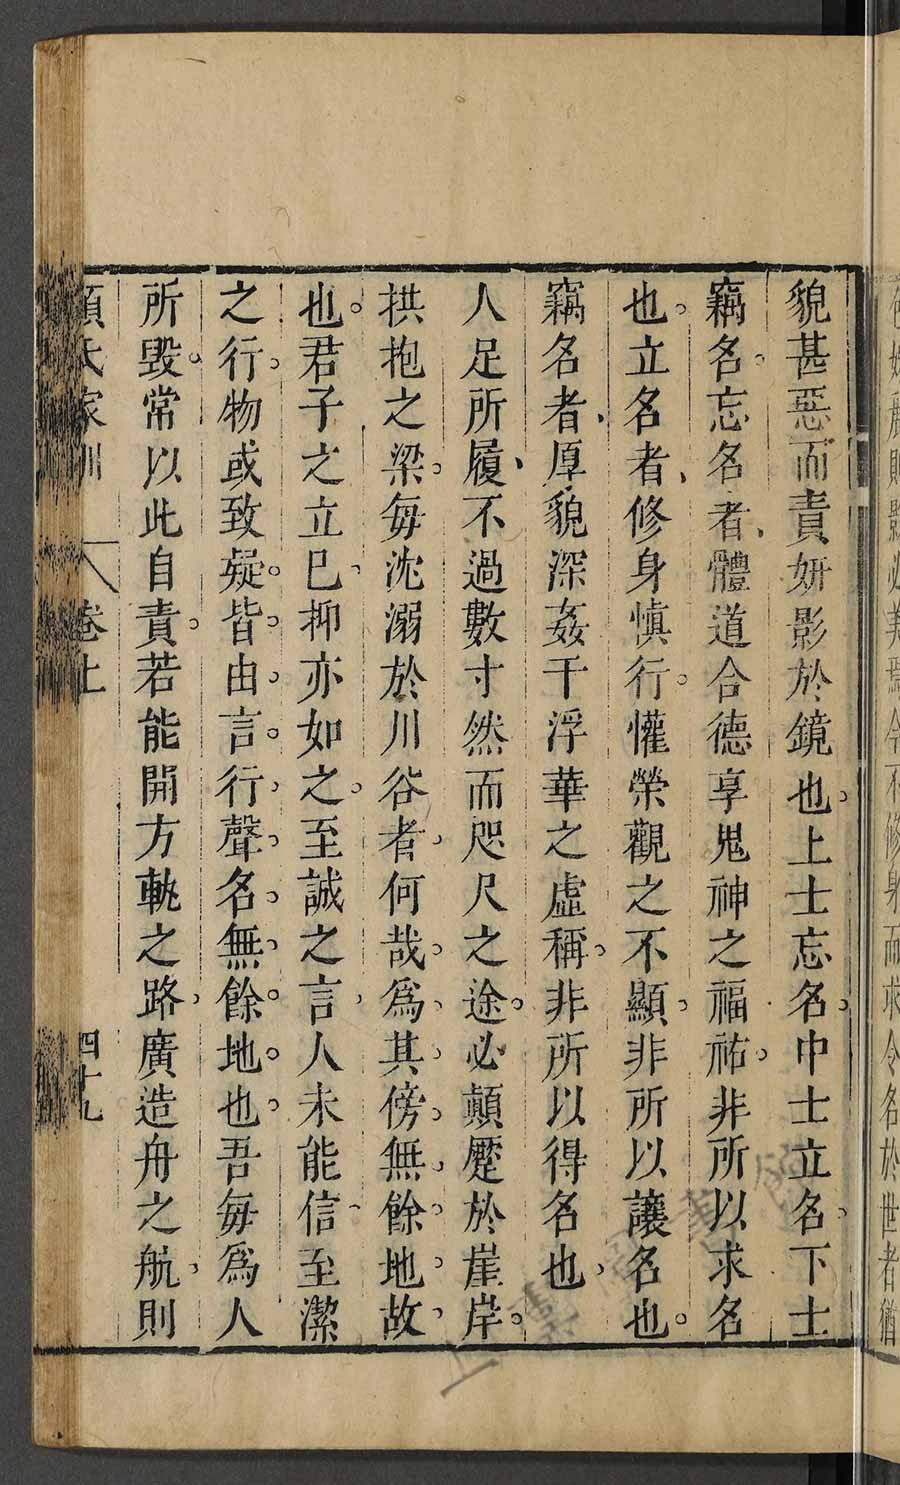 色姝麗則影必美焉今不修身而求令名於世者猶
貌甚惡而責妍影於鏡也。上士忘名。中士立名。下士
竊名。忘名者、體道合德享鬼神之福祐。非所以求名
也。立名者、修身慎行。懼榮觀之不顯。非所以讓名也。
竊名者、厚貌深姦干浮華之虛稱。非所以得名也、
人足所履、不過數寸然而咫尺之途。必顛蹷於崖岸。
拱抱之梁。每沈溺於川谷者、何哉。爲、其傍。無、餘。地。故、
也。君子之立巳、抑亦如之。至誠之言、人未能信、至潔
之行。物或致疑。皆。由。言。行、聲。名。無、餘。地。也。吾每爲人
所毀。常以此自責。若能開方軌之路、廣造舟之航、則
顏氏家訓 卷上 四十九